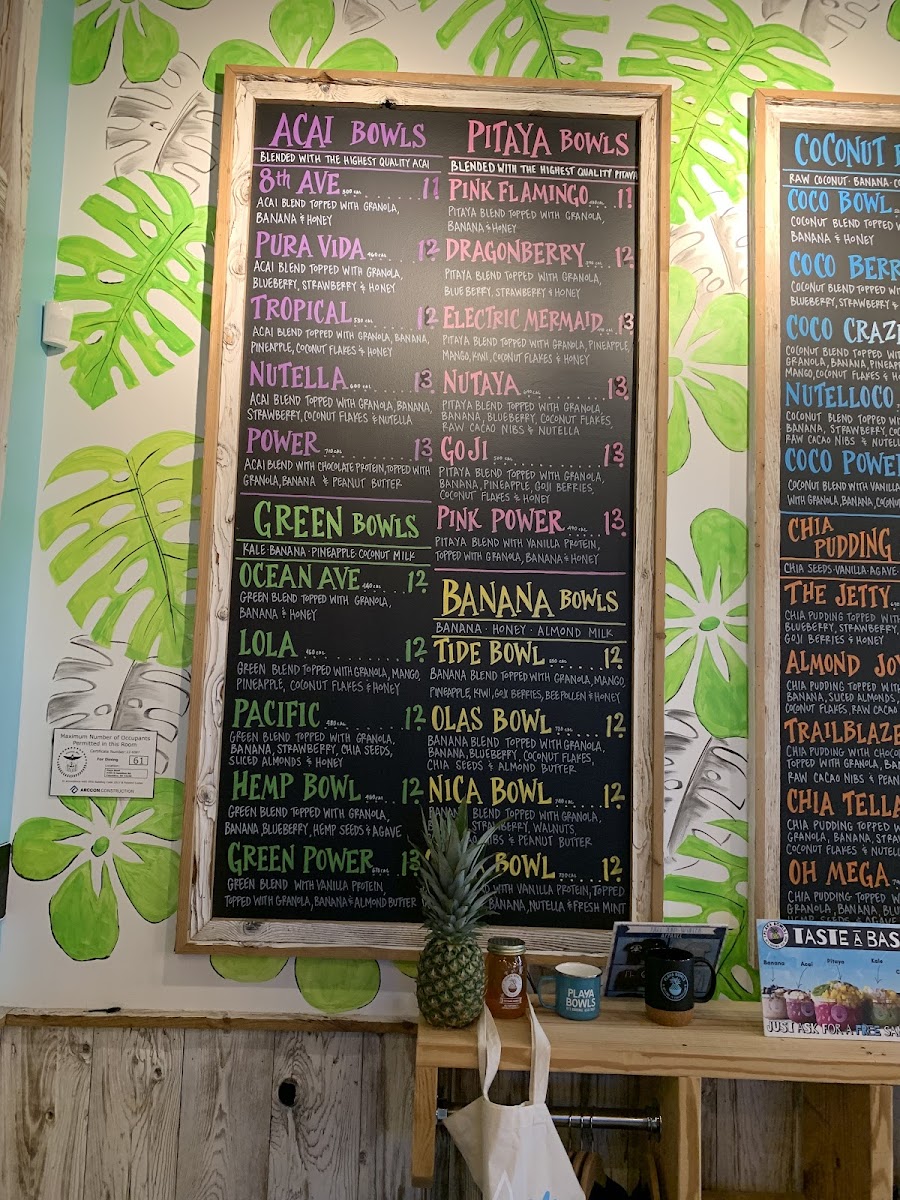 ACAI BOWLS
BLENDED WITH THE HIGHEST QUALITY ACAI
8th AVE 11
ACAI BLEND TOPPED WITH GRANOLA,
BANANA & HONEY
PURA VIDA 460 CAL 12
ACAI BLEND TOPPED WITH GRANOLA,
BLUEBERRY, STRAWBERRY & HONEY
TROPICAL 530 CAL 12
ACAI BLEND TOPPED WITH GRANOLA, BANANA,
PINEAPPLE, COCONUT FLAKES & HONEY
NUTELLA 600 CAL 13
ACAI BLEND TOPPED WITH GRANOLA, BANANA,
STRAWBERRY, COCONUT FLAKES & NUTELLA
POWER 700 CAL 13
ACAI BLEND WITH CHOCOLATE PROTEIN, TOPPED WITH
GRANOLA, BANANA & PEANUT BUTTER
GREEN BOWLS
KALE · BANANA · PINEAPPLE · COCONUT MILK
OCEAN AVE 440 CAL 12
GREEN BLEND TOPPED WITH GRANOLA,
BANANA & HONEY
LOLA 12
GREEN BLEND TOPPED WITH GRANOLA, MANGO,
PINEAPPLE, COCONUT FLAKES & HONEY
PACIFIC 12
GREEN BLEND TOPPED WITH GRANOLA,
BANANA, STRAWBERRY, CHIA SEEDS,
SLICED ALMONDS & HONEY
HEMP BOWL 12
GREEN BLEND TOPPED WITH GRANOLA,
BANANA, BLUEBERRY, HEMP SEEDS & AGAVE
GREEN POWER 13
GREEN BLEND WITH VANILLA PROTEIN,
TOPPED WITH GRANOLA, BANANA & ALMOND BUTTER
PITAYA BOWLS
BLENDED WITH THE HIGHEST QUALITY PITAYA
PINK FLAMINGO 11
PITAYA BLEND TOPPED WITH GRANOLA,
BANANA & HONEY
DRAGONBERRY 12
PITAYA BLEND TOPPED WITH GRANOLA,
BLUEBERRY, STRAWBERRY & HONEY
ELECTRIC MERMAID 13
PITAYA BLEND TOPPED WITH GRANOLA, PINEAPPLE,
MANGO, KIWI, COCONUT FLAKES & HONEY
NUTAYA 13
PITAYA BLEND TOPPED WITH GRANOLA,
BANANA, BLUEBERRY, COCONUT FLAKES,
RAW CACAO NIBS & NUTELLA
GOJI 13
PITAYA BLEND TOPPED WITH GRANOLA,
BANANA, PINEAPPLE, GOJI BERRIES,
COCONUT FLAKES & HONEY
PINK POWER 13
PITAYA BLEND WITH VANILLA PROTEIN,
TOPPED WITH GRANOLA, BANANA & HONEY
BANANA BOWLS
BANANA · HONEY · ALMOND MILK
TIDE BOWL 12
BANANA BLEND TOPPED WITH GRANOLA, MANGO,
PINEAPPLE, KIWI, GOJI BERRIES, BEE POLLEN & HONEY
OLAS BOWL 12
BANANA BLEND TOPPED WITH GRANOLA,
BANANA, BLUEBERRY, COCONUT FLAKES,
CHIA SEEDS & ALMOND BUTTER
NICA BOWL 12
BANANA BLEND TOPPED WITH GRANOLA,
STRAWBERRY, WALNUTS,
NIBS & PEANUT BUTTER
BOWL 12
WITH VANILLA PROTEIN, TOPPED
BANANA, NUTELLA & FRESH MINT
COCONUT
RAW COCONUT · BANANA ·
COCO BOWL
COCONUT BLEND TOPPED
BANANA & HONEY
COCO BERR
COCONUT BLEND TOPPED WITH
BLUEBERRY, STRAWBERRY &
COCO CRAZE
COCONUT BLEND TOPPED WITH
GRANOLA, BANANA, PINEAPP
MANGO, COCONUT FLAKES &
NUTELLOCO
COCONUT BLEND TOPPED WIT
BANANA, STRAWBERRY, CO
RAW CACAO NIBS & NUTEL
COCO POWE
COCONUT BLEND WITH VANILLA
WITH GRANOLA, BANANA, COCONU
CHIA PUDDING
CHIA SEEDS · VANILLA · AGAVE ·
THE JETTY
CHIA PUDDING TOPPED WITH
BLUEBERRY, STRAWBERRY,
GOJI BERRIES & HONEY
ALMOND JOY
CHIA PUDDING TOPPED WIT
BANANA, SLICED ALMONDS,
COCONUT FLAKES, RAW CACAO
TRAILBLAZE
CHIA PUDDING WITH CHOCO
TOPPED WITH GRANOLA, BAN
RAW CACAO NIBS & PEAN
CHIA TELLA
CHIA PUDDING TOPPED W
GRANOLA, BANANA, STRA
COCONUT FLAKES & NUTEL
OH MEGA
CHIA PUDDING TOPPED W
GRANOLA, BANANA, BLU
Maximum Number of Occupants
Permitted in this Room
For Dining 61
ARCCON CONSTRUCTION
PLAYA
BOWLS
TASTE A BAS
Banana Acai Pitaya Kale
JUST ASK FOR A FREE SA